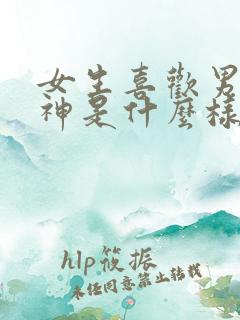 女生喜歡男
神是什麼樣
hlp筱振
未经同意禁止转载